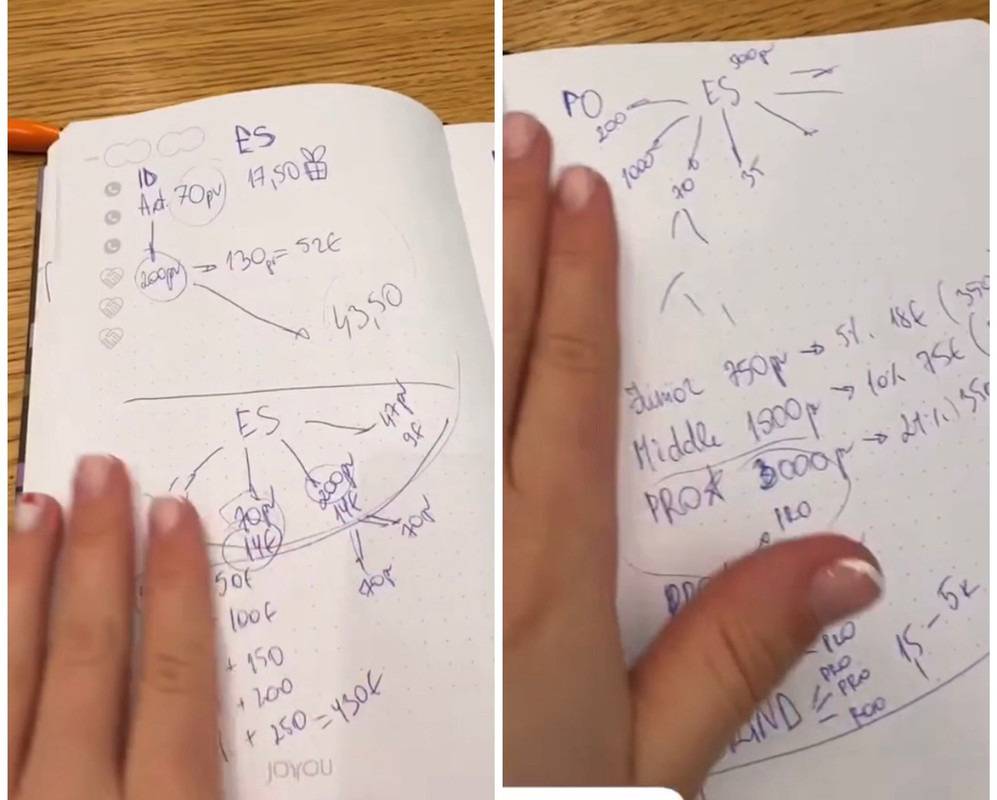 ES
ID
Art. 70pv 17,50
200pv → 130pv = 52€
43,50
ES
47pv
9€
200pv
14€
70pv
14€
70pv
70pv
50€
100€
+ 150
+ 200
+ 250 = 430€
JOYOU
PO
ES
200
1000
70
35
Junior 750pv → 5%. 18€
Middle 1500pv → 10% 75€
PRO 3000pv → 21%
PRO
PRO
PRO
PRO
15 - 5k